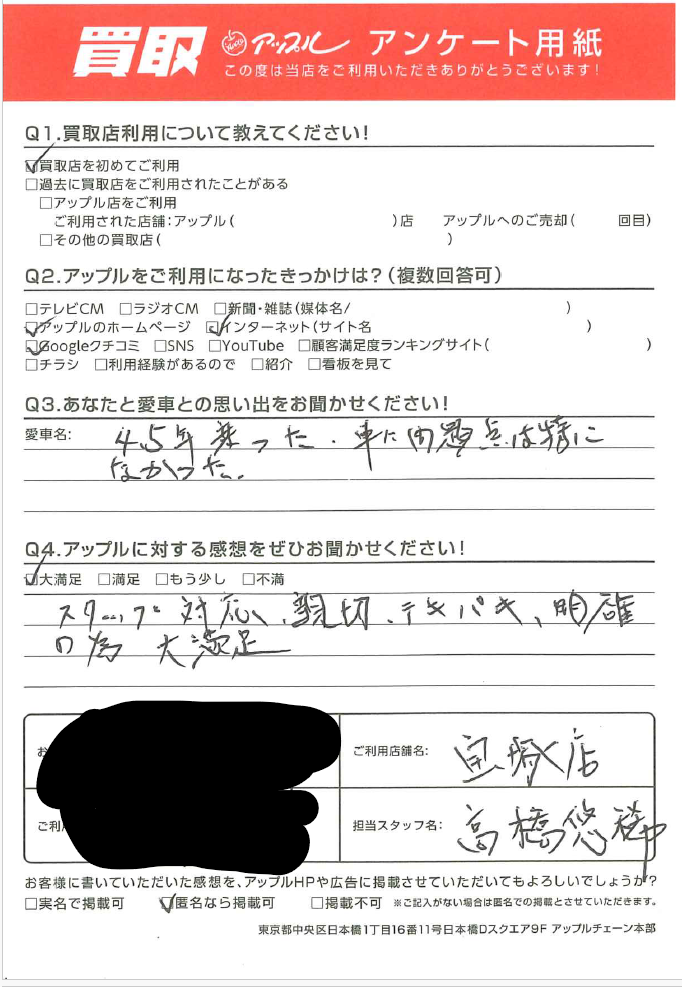 買取 アップル アンケート用紙
この度は当店をご利用いただきありがとうございます!
Q1.買取店利用について教えてください!
☑買取店を初めてご利用
□過去に買取店をご利用されたことがある
□アップル店をご利用
ご利用された店舗:アップル( )店 アップルへのご売却( 回目)
□その他の買取店( )
Q2.アップルをご利用になったきっかけは?(複数回答可)
□テレビCM □ラジオCM □新聞・雑誌(媒体名/ )
☑アップルのホームページ ☑インターネット(サイト名 )
☑Googleクチコミ □SNS □YouTube □顧客満足度ランキングサイト( )
□チラシ □利用経験があるので □紹介 □看板を見て
Q3.あなたと愛車との思い出をお聞かせください!
愛車名: 4.5年乗った.車に問題点は特に
なかった.
Q4.アップルに対する感想をぜひお聞かせください!
☑大満足 □満足 □もう少し □不満
スタッフ対応、親切、テキパキ、明確
の為 大満足
お
ご利用店舗名:
店
ご利
担当スタッフ名: 高橋悠
お客様に書いていただいた感想を、アップルHPや広告に掲載させていただいてもよろしいでしょうか?
□実名で掲載可 ☑匿名なら掲載可 □掲載不可 ※ご記入がない場合は匿名での掲載とさせていただきます。
東京都中央区日本橋1丁目16番11号日本橋Dスクエア9F アップルチェーン本部